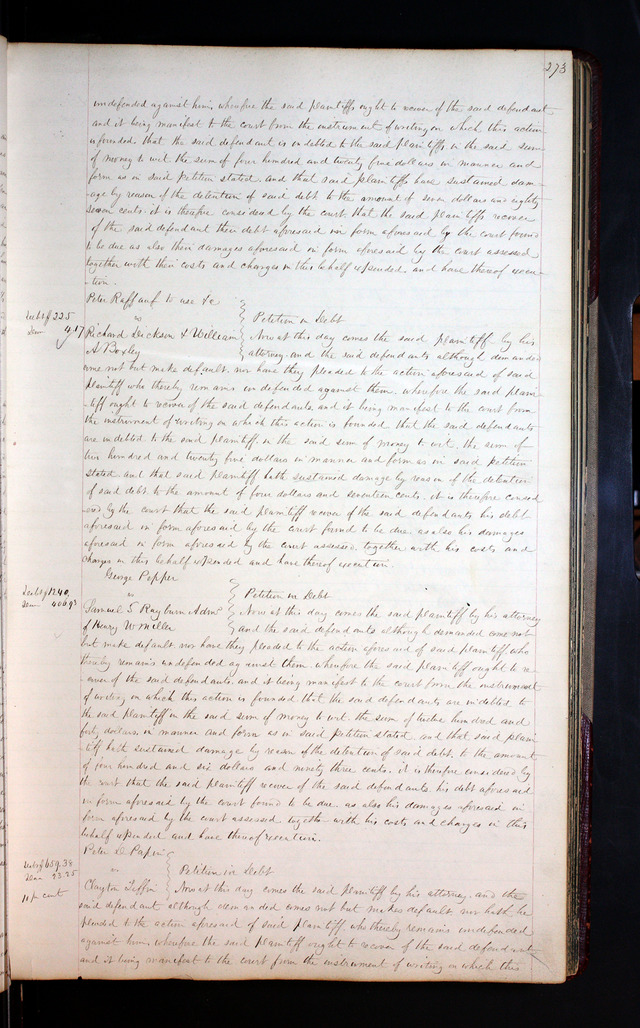 273
undefended against him, wherefore the said plaintiffs ought to recover of the said defendant
and it being manifest to the court from the instrument of writing on which this action
is founded, that the said defendant is indebted to the said plaintiffs in the said sum
of money to wit the sum of four hundred and twenty five dollars in manner and
form as in said Petition stated. and that said plaintiffs have sustained dam-
age by reason of the detention of said debt to the amount of seven dollars and eighty
seven cents. it is therefore considered by the court that the said plaintiffs recover
of the said defendant their debt aforesaid in form aforesaid by the court found
to be due as also their damages aforesaid in form aforesaid by the court assessed
together with their costs and charges in this behalf expended. and have thereof execu-
tion.
Peter Raffauf to use &c
Debt $ 225
vs
Petition in Debt
Dam 4.17
Richard Dickson & William
Now at this day comes the said plaintiff by his
A Boxley
attorney. and the said defendants although demanded
come not but make default. nor have they pleaded to the action aforesaid of said
plaintiff who thereby remains undefended against them. wherefore the said plain
tiff ought to recover of the said defendants, and it being manifest to the court from
the instrument of writing on which this action is founded that the said defendants
are indebted to the said plaintiff in the said sum of money to wit. the sum of
two hundred and twenty five dollars in manner and form as in said petition
stated. and that said plaintiff hath sustained damage by reason of the detention
of said debt to the amount of four dollars and seventeen cents. it is therefore consid
ered by the court that the said plaintiff recover of the said defendants his debt
aforesaid in form aforesaid by the court found to be due. as also his damages
aforesaid in form aforesaid by the court assessed, together with his costs and
charges in this behalf expended and have thereof execution.
George Pepper
Debt $ 1240,
vs
Petition in Debt
Dam 406.93
Samuel S Rayburn Admr
Now at this day comes the said plaintiff by his attorney
of Henry W Miller
and the said defendants although demanded come not
but make default. nor have they pleaded to the action aforesaid of said plaintiff who
thereby remains undefended against them. wherefore the said plaintiff ought to re-
cover of the said defendants, and it being manifest to the court from the instrument
of writing on which this action is founded that the said defendants are indebted to
the said plaintiff in the said sum of money to wit. the sum of twelve hundred and
forty dollars, in manner and form as in said petition stated and that said plain
tiff hath sustained damage by reason of the detention of said debt. to the amount
of four hundred and six dollars and ninety three cents. it is therefore considered by
the court that the said plaintiff recover of the said defendants his debt aforesaid
in form aforesaid by the court found to be due. as also his damages aforesaid in
form aforesaid by the court assessed together with his costs and charges in this
behalf expended and have thereof execution.
Peter D Papin
Debt $ 659.38
vs
Petition in Debt
Dam 93.25
Clayton Tiffin
Now at this day comes the said plaintiff by his attorney. and the
cent
said defendant although demanded comes not but makes default nor hath he
pleaded to the action aforesaid of said plaintiff. who thereby remains undefended
against him, wherefore the said plaintiff ought to recover of the said defendant
and it being manifest to the court from the instrument of writing on which this